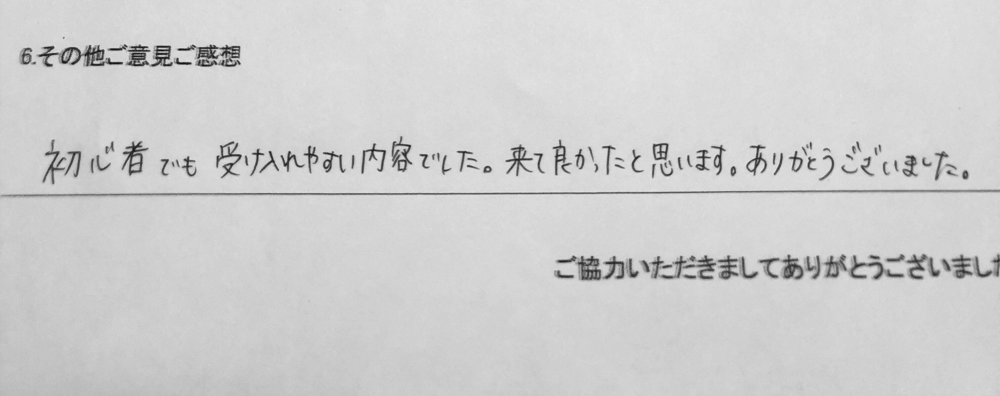 6.その他ご意見ご感想
初心者でも受け入れやすい内容でした。来て良かったと思います。ありがとうございました。
ご協力いただきましてありがとうございました